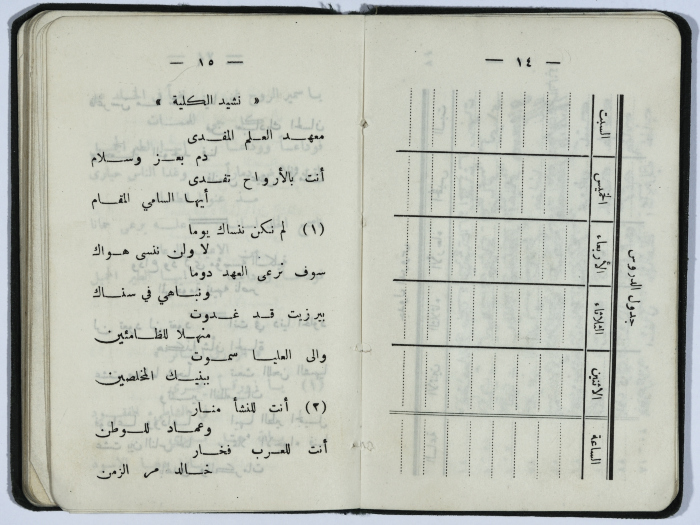 — ١٤ —
جدول الدروس
السبت
الخميس
الأربعاء
الثلاثاء
الاثنين
الساعة
— ١٥ —
« نشيد الكلية »
معهد العلم المفدى
دم بعز وسلام
أنت بالأرواح تفدى
أيها السامي المقام
(١) لم نكن ننساك يوما
لا ولن ننسى هواك
سوف نرعى العهد دوما
ونباهي في سناك
بيرزيت قد غدوت
منهلا للظامئين
والى العليا سموت
ببنيك المخلصين
(٢) أنت للنشأ منار
وعماد للوطن
أنت للعرب فخار
خالد مر الزمن